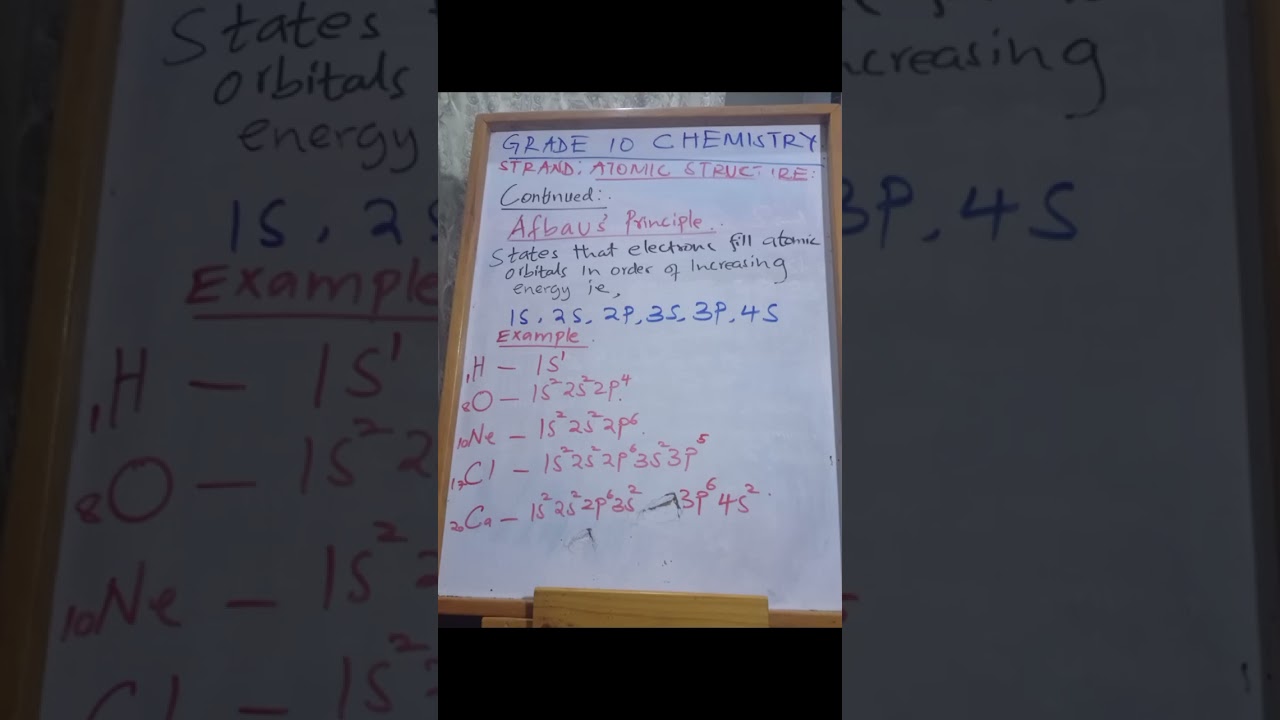 GRADE 10 CHEMISTRY
STRAND: ATOMIC STRUCTURE:
Continued:.
Afbau's Principle.
States that electrons fill atomic
orbitals in order of Increasing
energy ie,
1S, 2S, 2P, 3S, 3P, 4S
Example.
₁H — 1S¹
₈O — 1S² 2S² 2P⁴.
₁₀Ne — 1S² 2S² 2P⁶.
₁₇Cl — 1S² 2S² 2P⁶ 3S² 3P⁵
₂₀Ca — 1S² 2S² 2P⁶ 3S² 3P⁶ 4S².